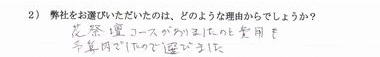 2）弊社をお選びいただいたのは、どのような理由からでしょうか？
花祭壇コースがありましたのと費用も
予算内でしたので選びました